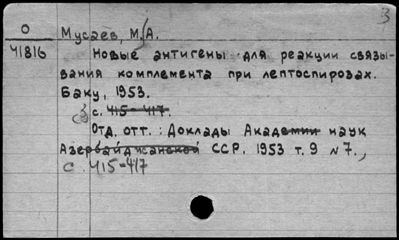 3
О
41816
Мусаев, М. А.
Новые антигены для реакции связы-
вания комплемента при лептоспирозах.
Баку, 1953.
с. 415-417.
Отд. отт.: Доклады Академии наук
Азербайджанской ССР. 1953 т. 9 № 7.,
с. 415-417